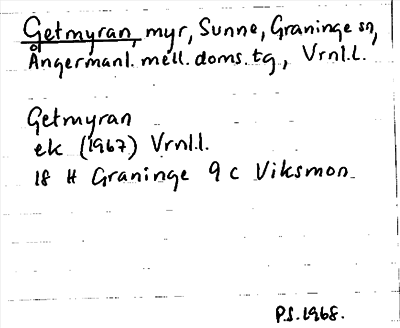 Getmyran, myr, Sunne, Graninge sn,
Ångermanl. mell. doms. tg, Vrnl.l.
Getmyran
ek (1967) Vrnl.l.
18 H Graninge 9 c Viksmon
P.S. 1968.